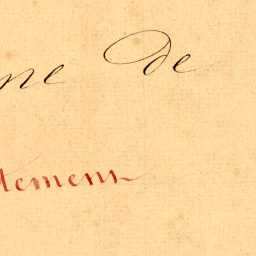 ne de
temens